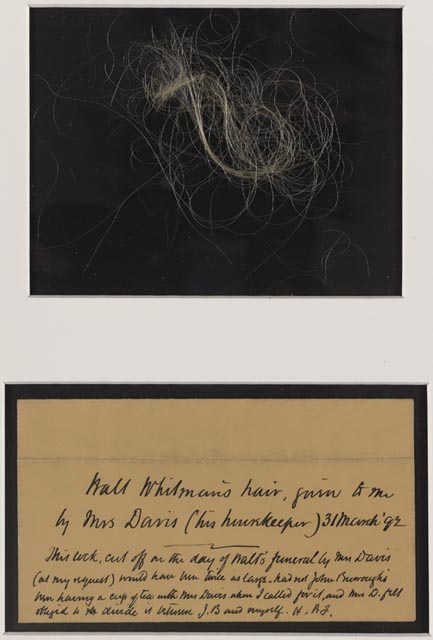 Walt Whitman's hair, given to me
by Mrs Davis (his housekeeper) 31 March '92
This lock, cut off on the day of Walt's funeral by Mrs Davis
(at my request) would have been twice as large had not John Burroughs
been having a cup of tea with Mrs Davis when I called for it, and Mrs D. felt
obliged to divide it between J.B and myself. H.